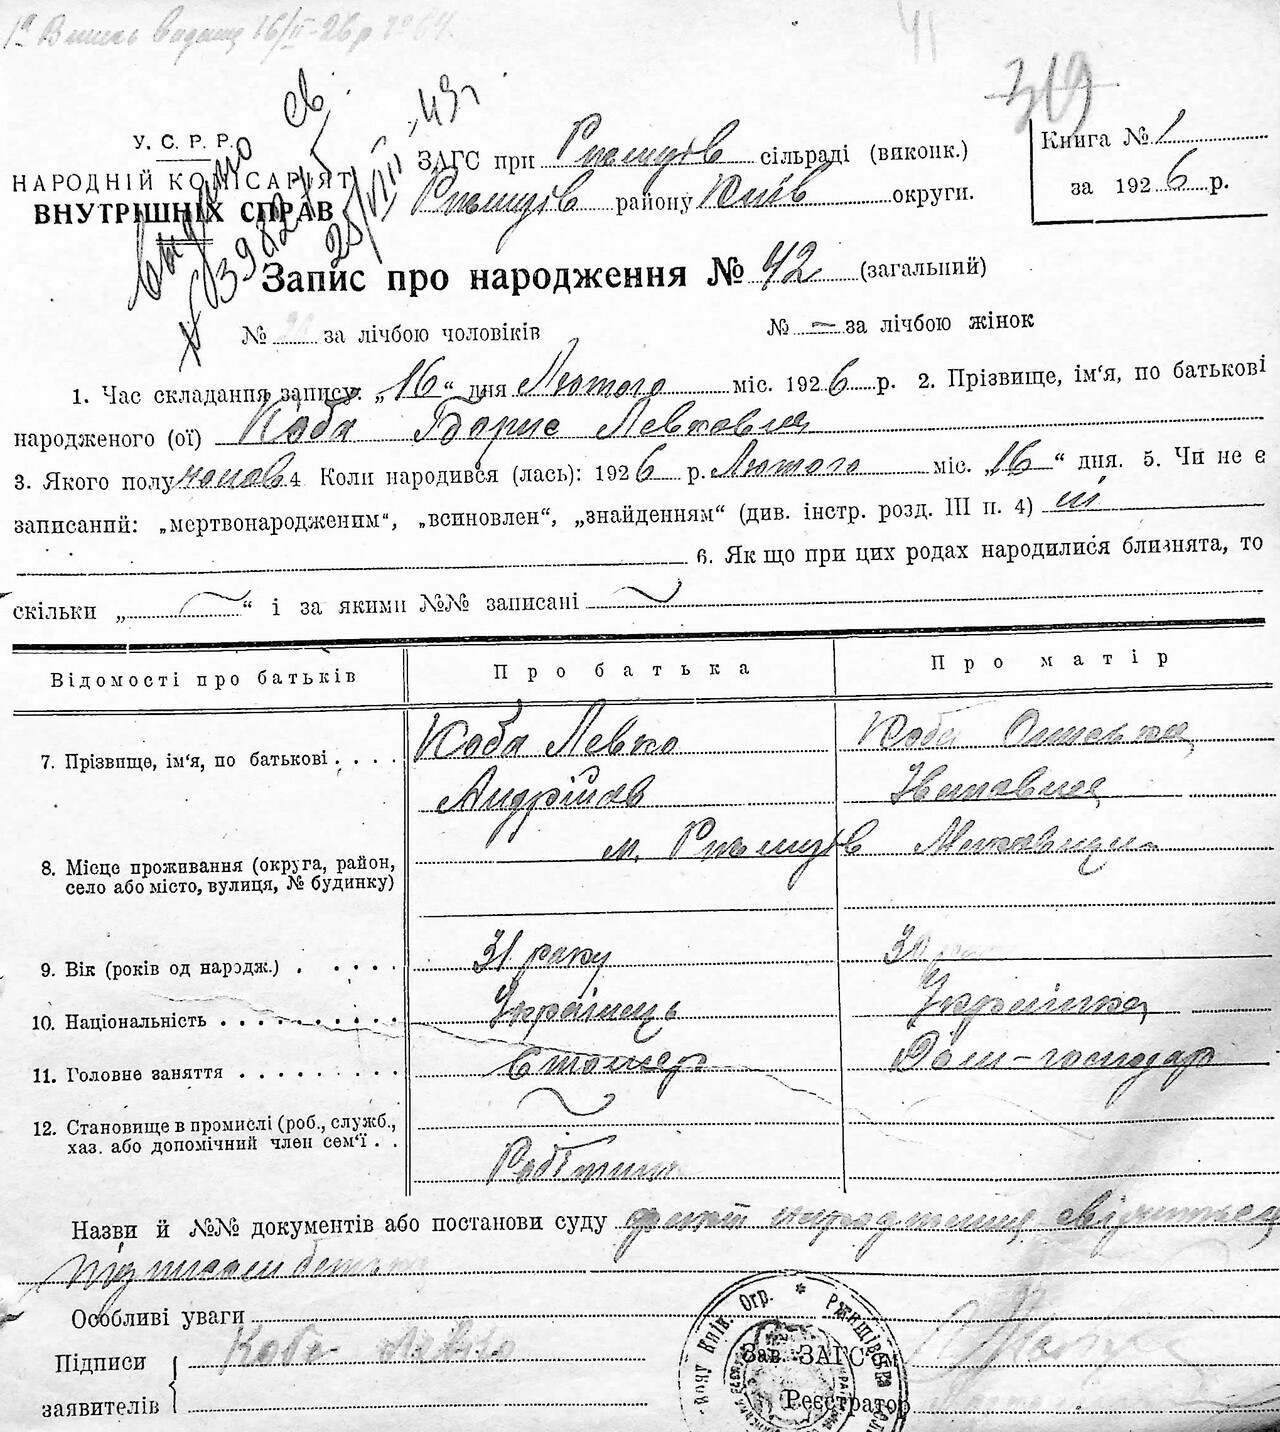 1º Випись видана 16/II-26 р № 64.
41
319
Видано св
№ 039824 б
25/VIII-43 г
У. С. Р. Р.
НАРОДНІЙ КОМІСАРІЯТ
ВНУТРІШНІХ СПРАВ
ЗАГС при Ржищів сільраді (виконк.)
Ржищів району Київ округи.
Книга № 1
за 1926 р.
Запис про народження № 42 (загальний)
№ за лічбою чоловіків № — за лічбою жінок
1. Час складання запису: „16“ дня Лютого міс. 1926 р. 2. Прізвище, ім'я, по батькові
народженого (ої) Коба Борис Левкович
3. Якого полу чолов 4 Коли народився (лась): 1926 р. Лютого міс. „16“ дня. 5. Чи не є
записаний: „мертвонародженим“, „всиновлен“, „знайденням“ (див. інстр. розд. III п. 4) ні
6. Як що при цих родах народилися близнята, то
скільки „ “ і за якими №№ записані
Відомості про батьків Про батька Про матір
7. Прізвище, ім'я, по батькові . . . . Коба Левко Коба
Андріїов Івановна
8. Місце проживання (округа, район,
село або місто, вулиця, № будинку)
м. Ржищів
9. Вік (років од нардж.) . . . . . 31 року 30
10. Національність . . . . . . . . . . Українець Українка
11. Головне заняття . . . . . . . . . Столяр Дом-господар
12. Становище в промислі (роб., служб.,
хаз. або допомічний член сем'ї . .
Робітник
Назви й №№ документів або постанови суду факт народження свідчиться
підписом батька
Особливі уваги
Підписи
заявителів
Коба Левко
Зав. ЗАГС'ом
Реєстратор
Київ. Огр. * Ржищівська